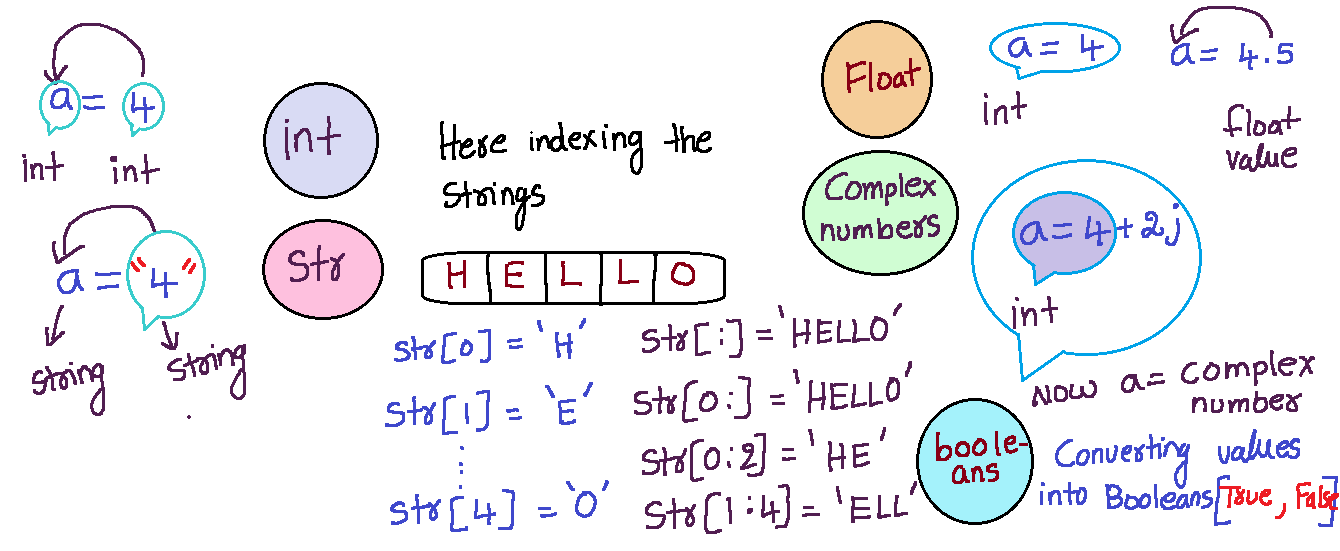 a = 4
int int
a = "4"
string string
int
Str
Here indexing the
Strings
H E L L O
Str[0] = 'H'
Str[1] = 'E'
⋮
Str[4] = 'O'
Str[:] = 'HELLO'
Str[0:] = 'HELLO'
Str[0:2] = 'HE'
Str[1:4] = 'ELL'
Float
a = 4
int
a = 4.5
float
value
Complex
numbers
a = 4 + 2j
int
Now a = complex
number
boole-
ans
Converting values
into Booleans[True, False]